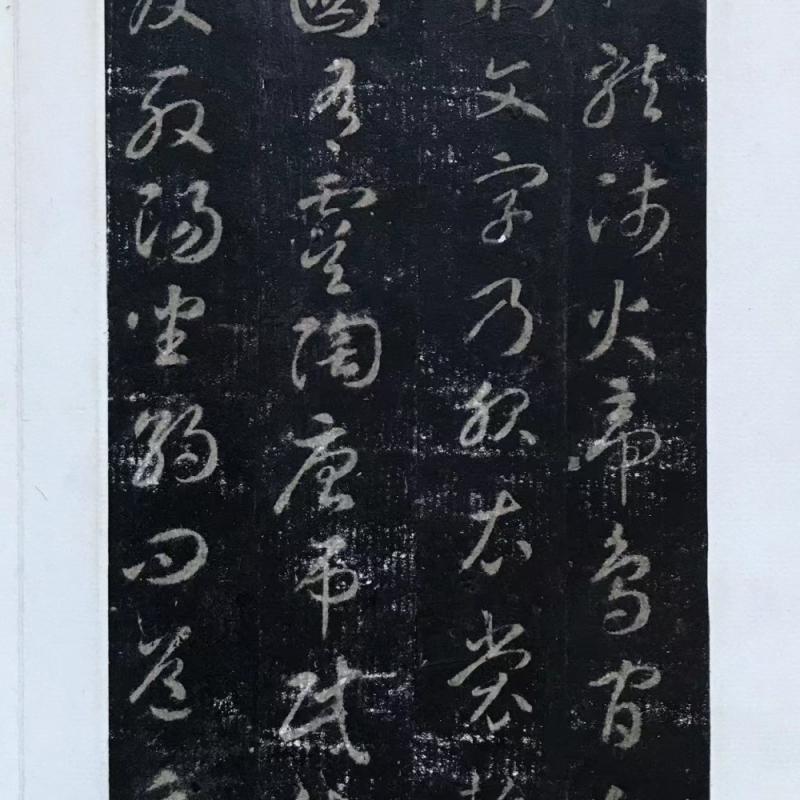 龍師火帝鳥官
文字乃服衣裳
國有虞陶唐弔民
發殷湯坐朝問道